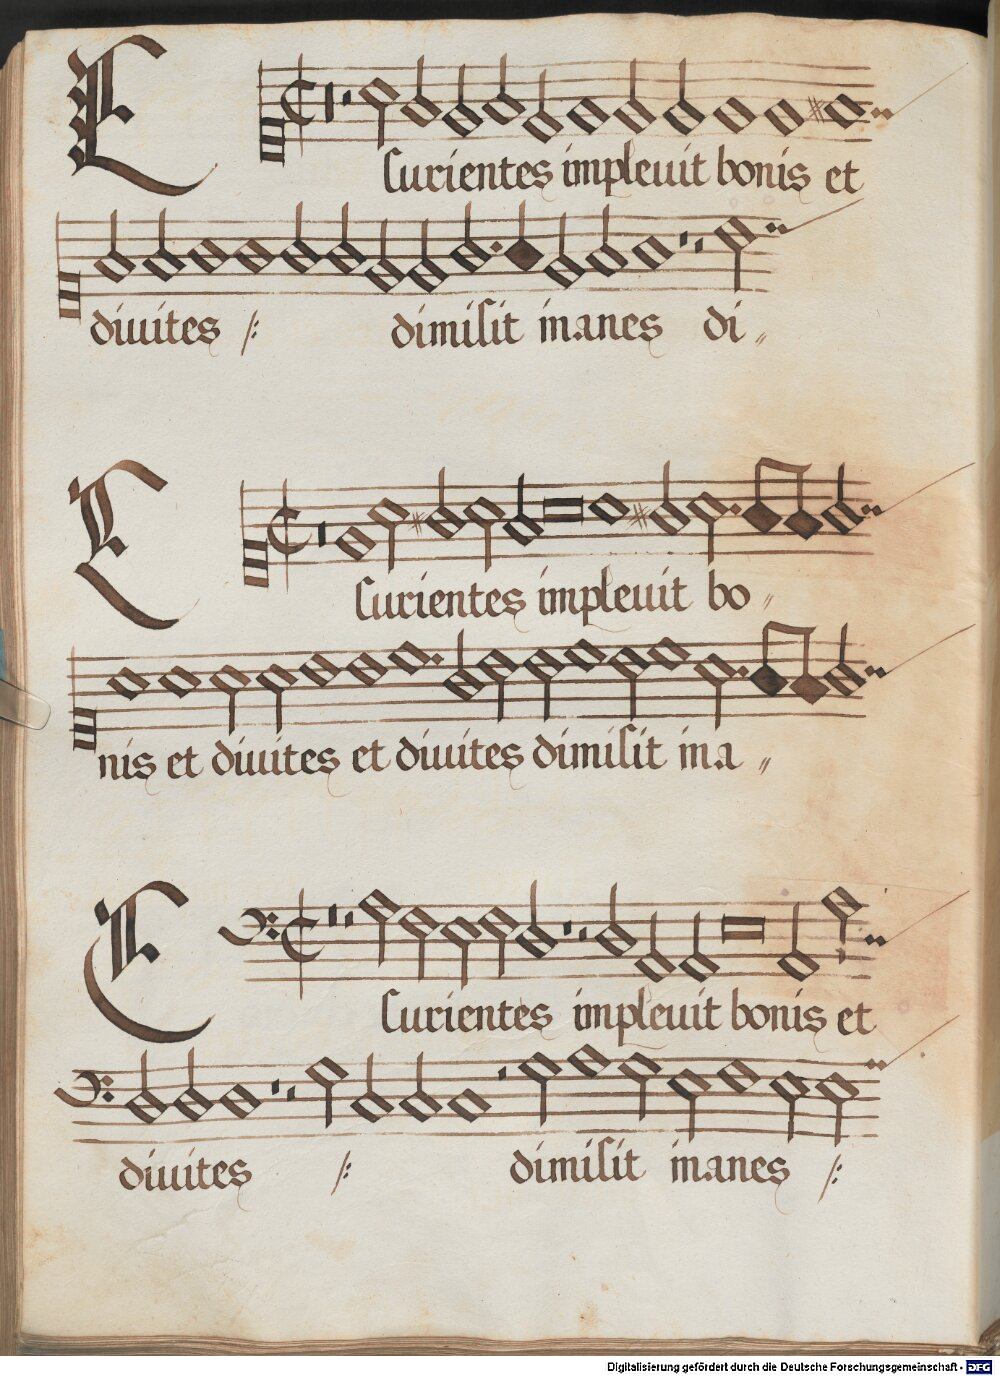 Esurientes impleuit bonis et
diuites /: dimisit inanes di〃
Esurientes impleuit bo〃
nis et diuites et diuites dimisit ina〃
Esurientes impleuit bonis et
diuites /: dimisit inanes /:
Digitalisierung gefördert durch die Deutsche Forschungsgemeinschaft - DFG